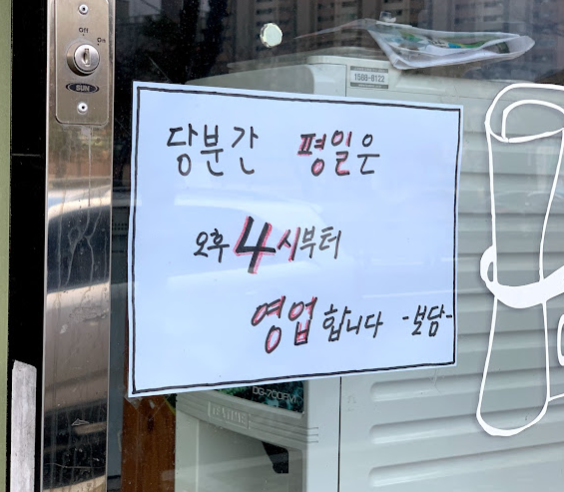 OFF
ON
SUN
1588-9123
당분간 평일은
오후 4시부터
영업합니다 -보담-